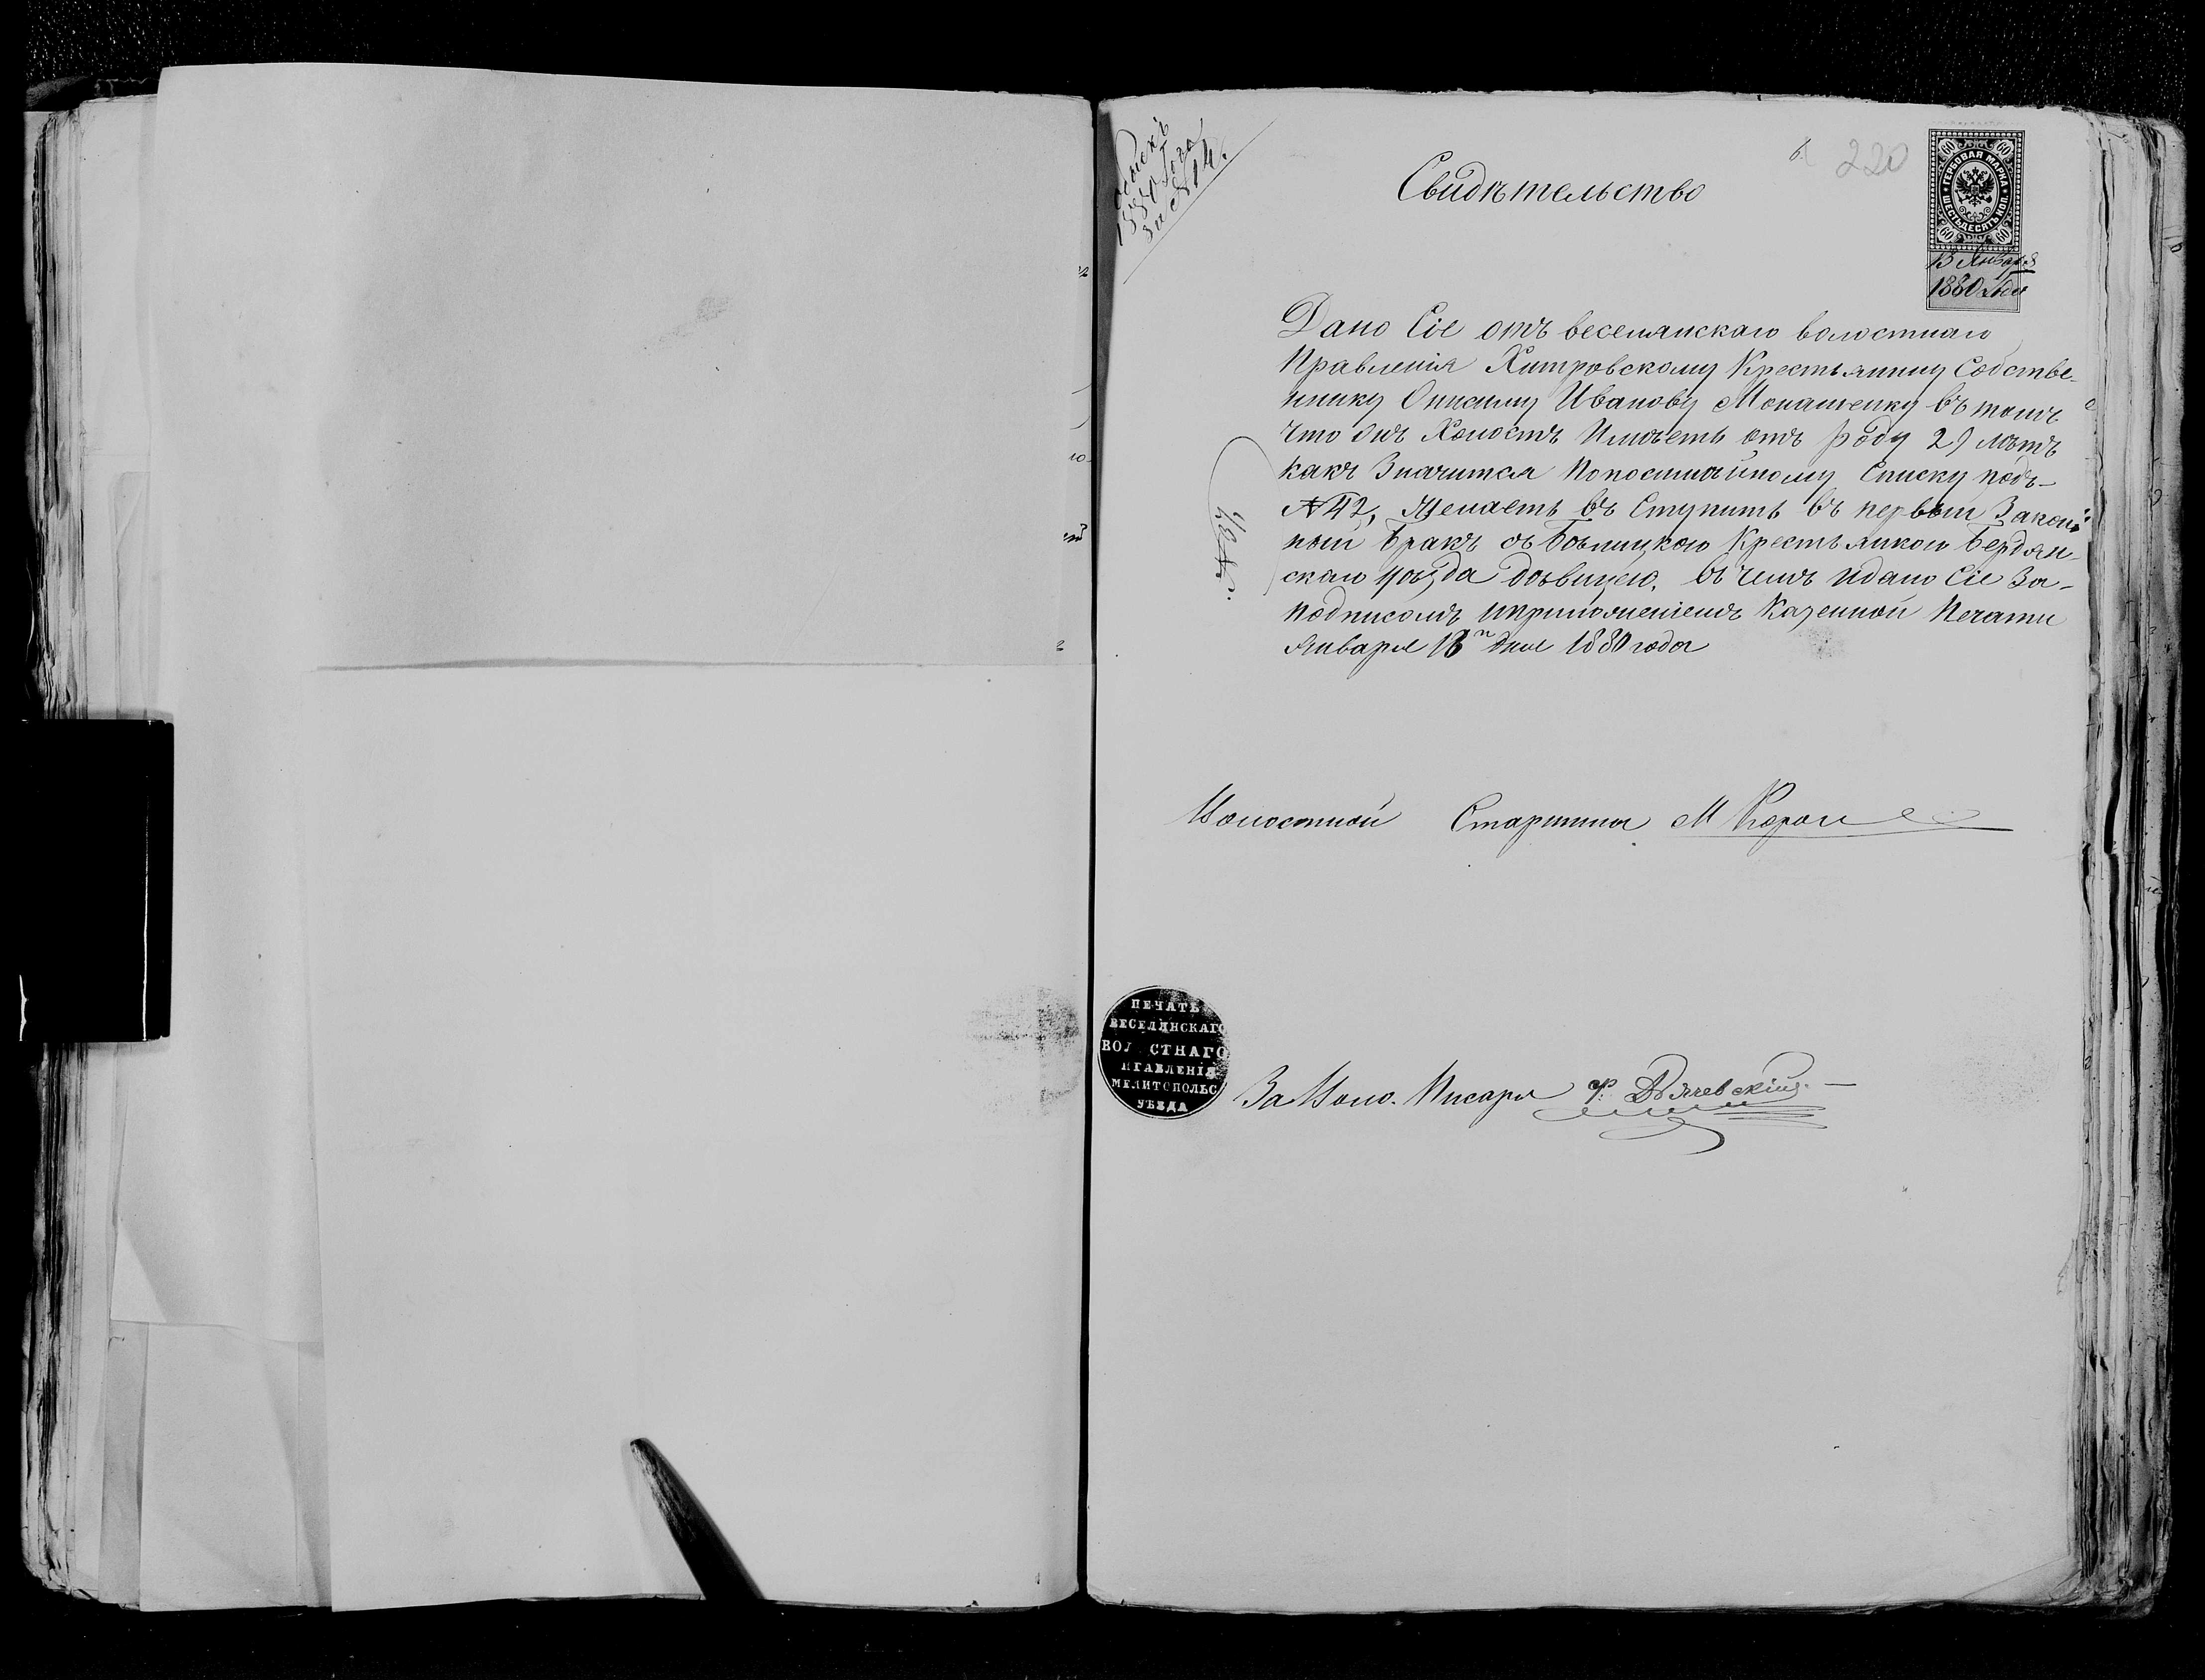 Обыскъ
1880 года
за №14.
220
Свидѣтельство
60 60
ГЕРБОВАЯ МАРКА
ШЕСТЬДЕСЯТЪ КОП.
60 60
13 Января
1880 года
Дано Сіе отъ веселянскаго волостнаго
Правленія Хитровскому Крестьянину Собстве-
ннику Онисиму Иванову Монашенку въ томъ
что онъ Холостъ Имѣетъ отъ роду 21 лѣтъ
какъ Значится Попосимѣйному Списку подъ-
№42, Желаетъ въ Ступить въ первый Закон-
ный бракъ съ Крестьянкою Бердян-
скаго уѣзда дѣвицею, въ чемъ идано Сіе За-
подписомъ иприложеніемъ Казенной Печати
Января 13 дня 1880 года
№42.
Волостной Старшина М Король
ПЕЧАТЬ
ВЕСЕЛЯНСКАГО
ВОЛ СТНАГО
ПРАВЛЕНІЯ
МЕЛИТОПОЛЬС
УѢЗДА
За Воло. Писаря Ф.